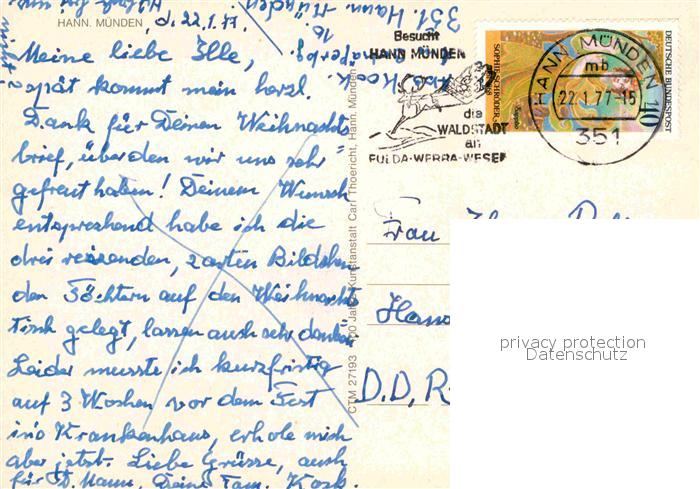 HANN. MÜNDEN
d. 22.1.77.
Meine liebe Ille,
spät kommt mein herzl.
Dank für Deinen Weihnachts
brief, über den wir uns sehr
gefreut haben! Deinem Wunsch
entsprechend habe ich die
drei reizenden, zarten Bildchen
den Töchtern auf den Weihnachts
tisch gelegt, lassen auch sehr danken.
Leider musste ich kurzfristig
auf 3 Wochen vor dem Fest
ins Krankenhaus, erhole mich
aber jetzt. Liebe Grüsse, auch
für D. Mann, Deine Fam. Kock.
351. Hann.-Münden
16
Abs. Kock
CTM 27193
100 Jahre Kunstanstalt Carl Thoericht, Hann. Münden
Besucht
HANN MÜNDEN
die
WALDSTADT
an
FULDA-WERRA-WESER
HANN. MÜNDEN
mb
22.1.77-15
351
SOPHIE SCHRÖDER
Sappho
DEUTSCHE BUNDESPOST
Frau
D.D.R.
privacy protection
Datenschutz